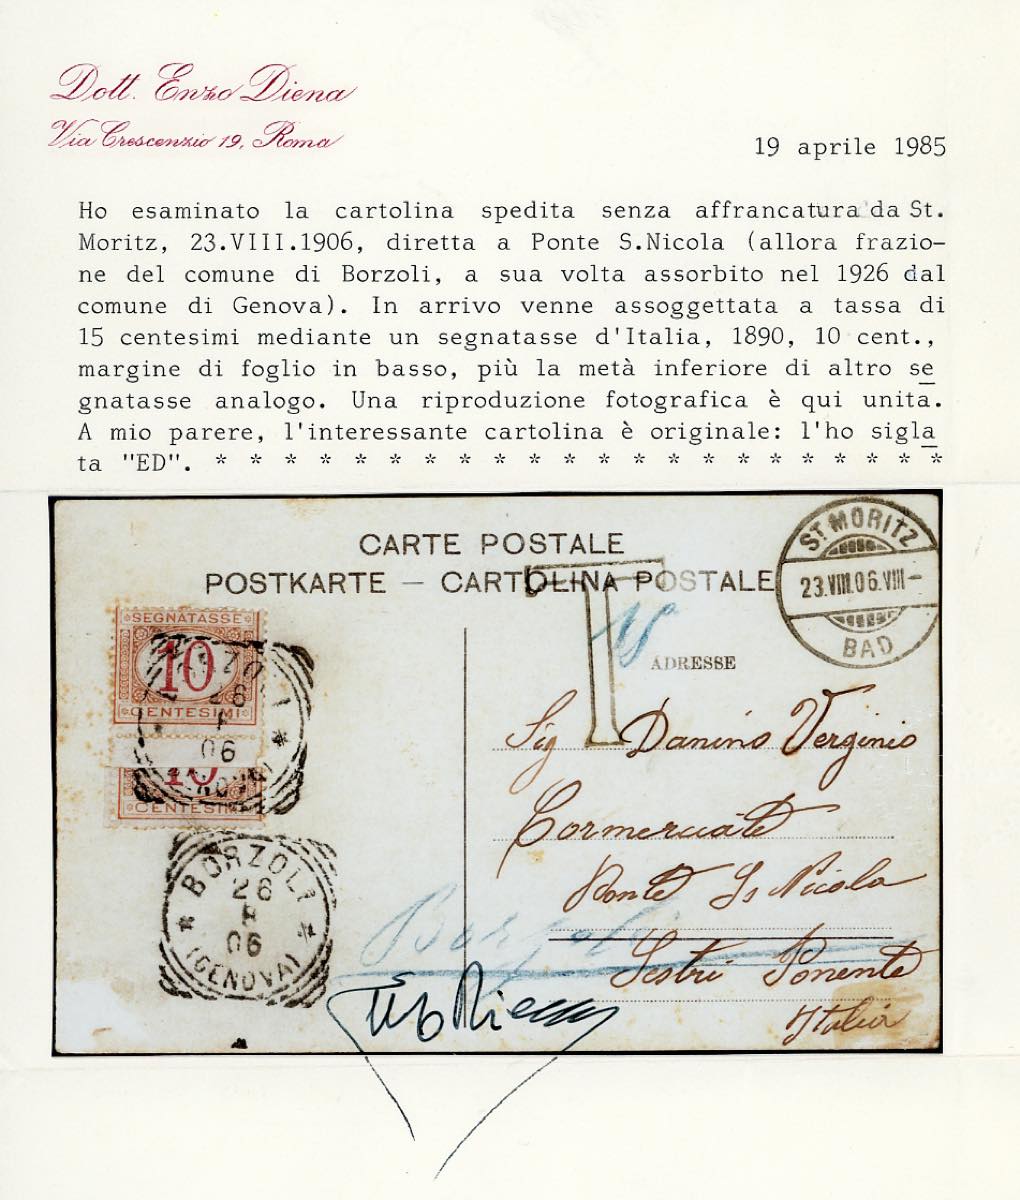 Dott. Enzo Diena
Via Crescenzio 19, Roma
19 aprile 1985
Ho esaminato la cartolina spedita senza affrancatura da St.
Moritz, 23.VIII.1906, diretta a Ponte S.Nicola (allora frazio-
ne del comune di Borzoli, a sua volta assorbito nel 1926 dal
comune di Genova). In arrivo venne assoggettata a tassa di
15 centesimi mediante un segnatasse d'Italia, 1890, 10 cent.,
margine di foglio in basso, più la metà inferiore di altro se
gnatasse analogo. Una riproduzione fotografica è qui unita.
A mio parere, l'interessante cartolina è originale: l'ho sigla
ta "ED". * * * * * * * * * * * * * * * * * * * * * *
CARTE POSTALE
POSTKARTE — CARTOLINA POSTALE
ST. MORITZ
23.VIII.06.VIII-
BAD
T
ADRESSE
SEGNATASSE
10
CENTESIMI
26
06
10
CENTESIMI
Sig Danino Verginio
Commerciate
Ponte S. Nicola
Borzoli
Sestri Ponente
Italia
BORZOLI
26
8
06
(GENOVA)
Enzo Diena